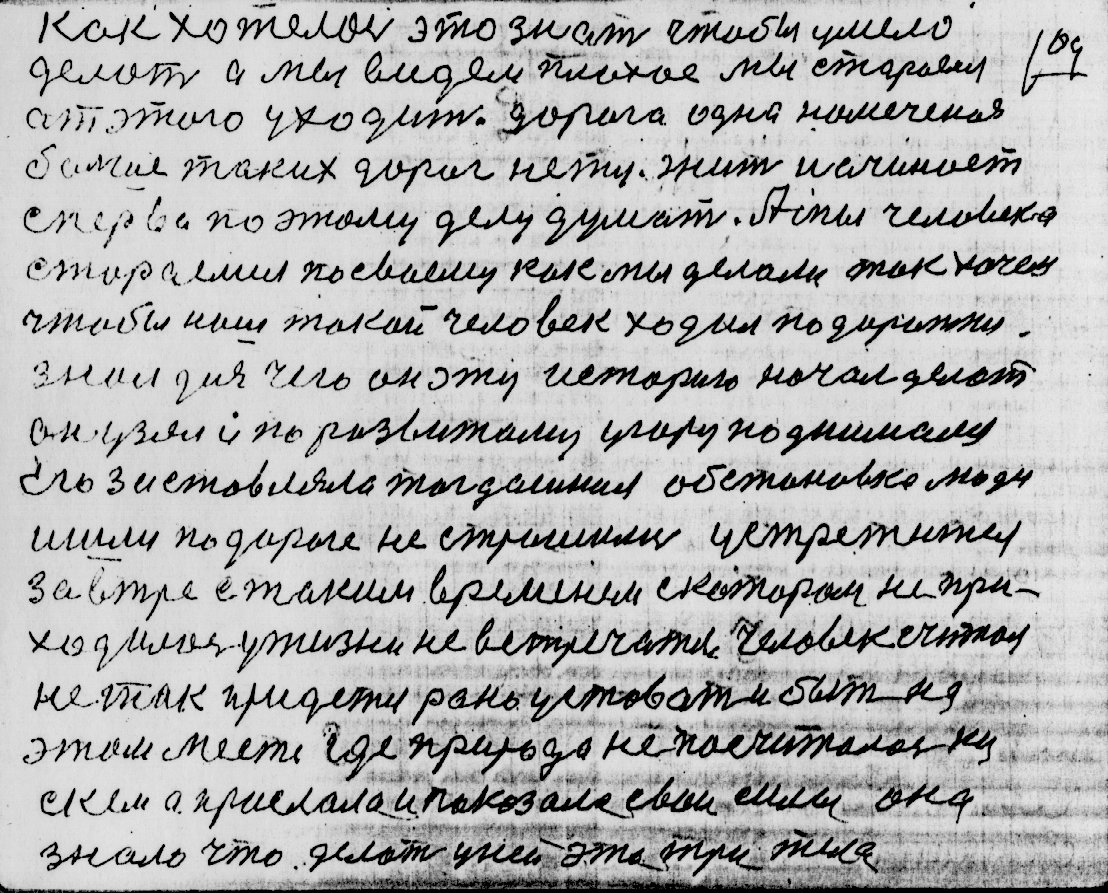 как хотелоя это знат чтобы умело
делот а мы видем плохое мы староемя
ат этого уходит. дорога одна намеченоя
более таких дорог нету. жит и ачиноет
сперва по этому делу думат. А мы человека
стораемя посваему как мы делоли так хочем
чтобы наш такой человек ходил по дорожки
знол для чего он эту историю начал делат
он узял и по розвитаму угору поднималя
Его зиставляла тогдашния обстоновка люди
шшли по дороге не стришили устретится
завтре с таким временем с котором не при-
ходилоя ужизни не встречатя. Человек считоя
не так придетя рано устават и быт на
этом месте где природа не посчиталоя ни
скем а прислала и показала свои силы она
знало что делот у ней эта три тела